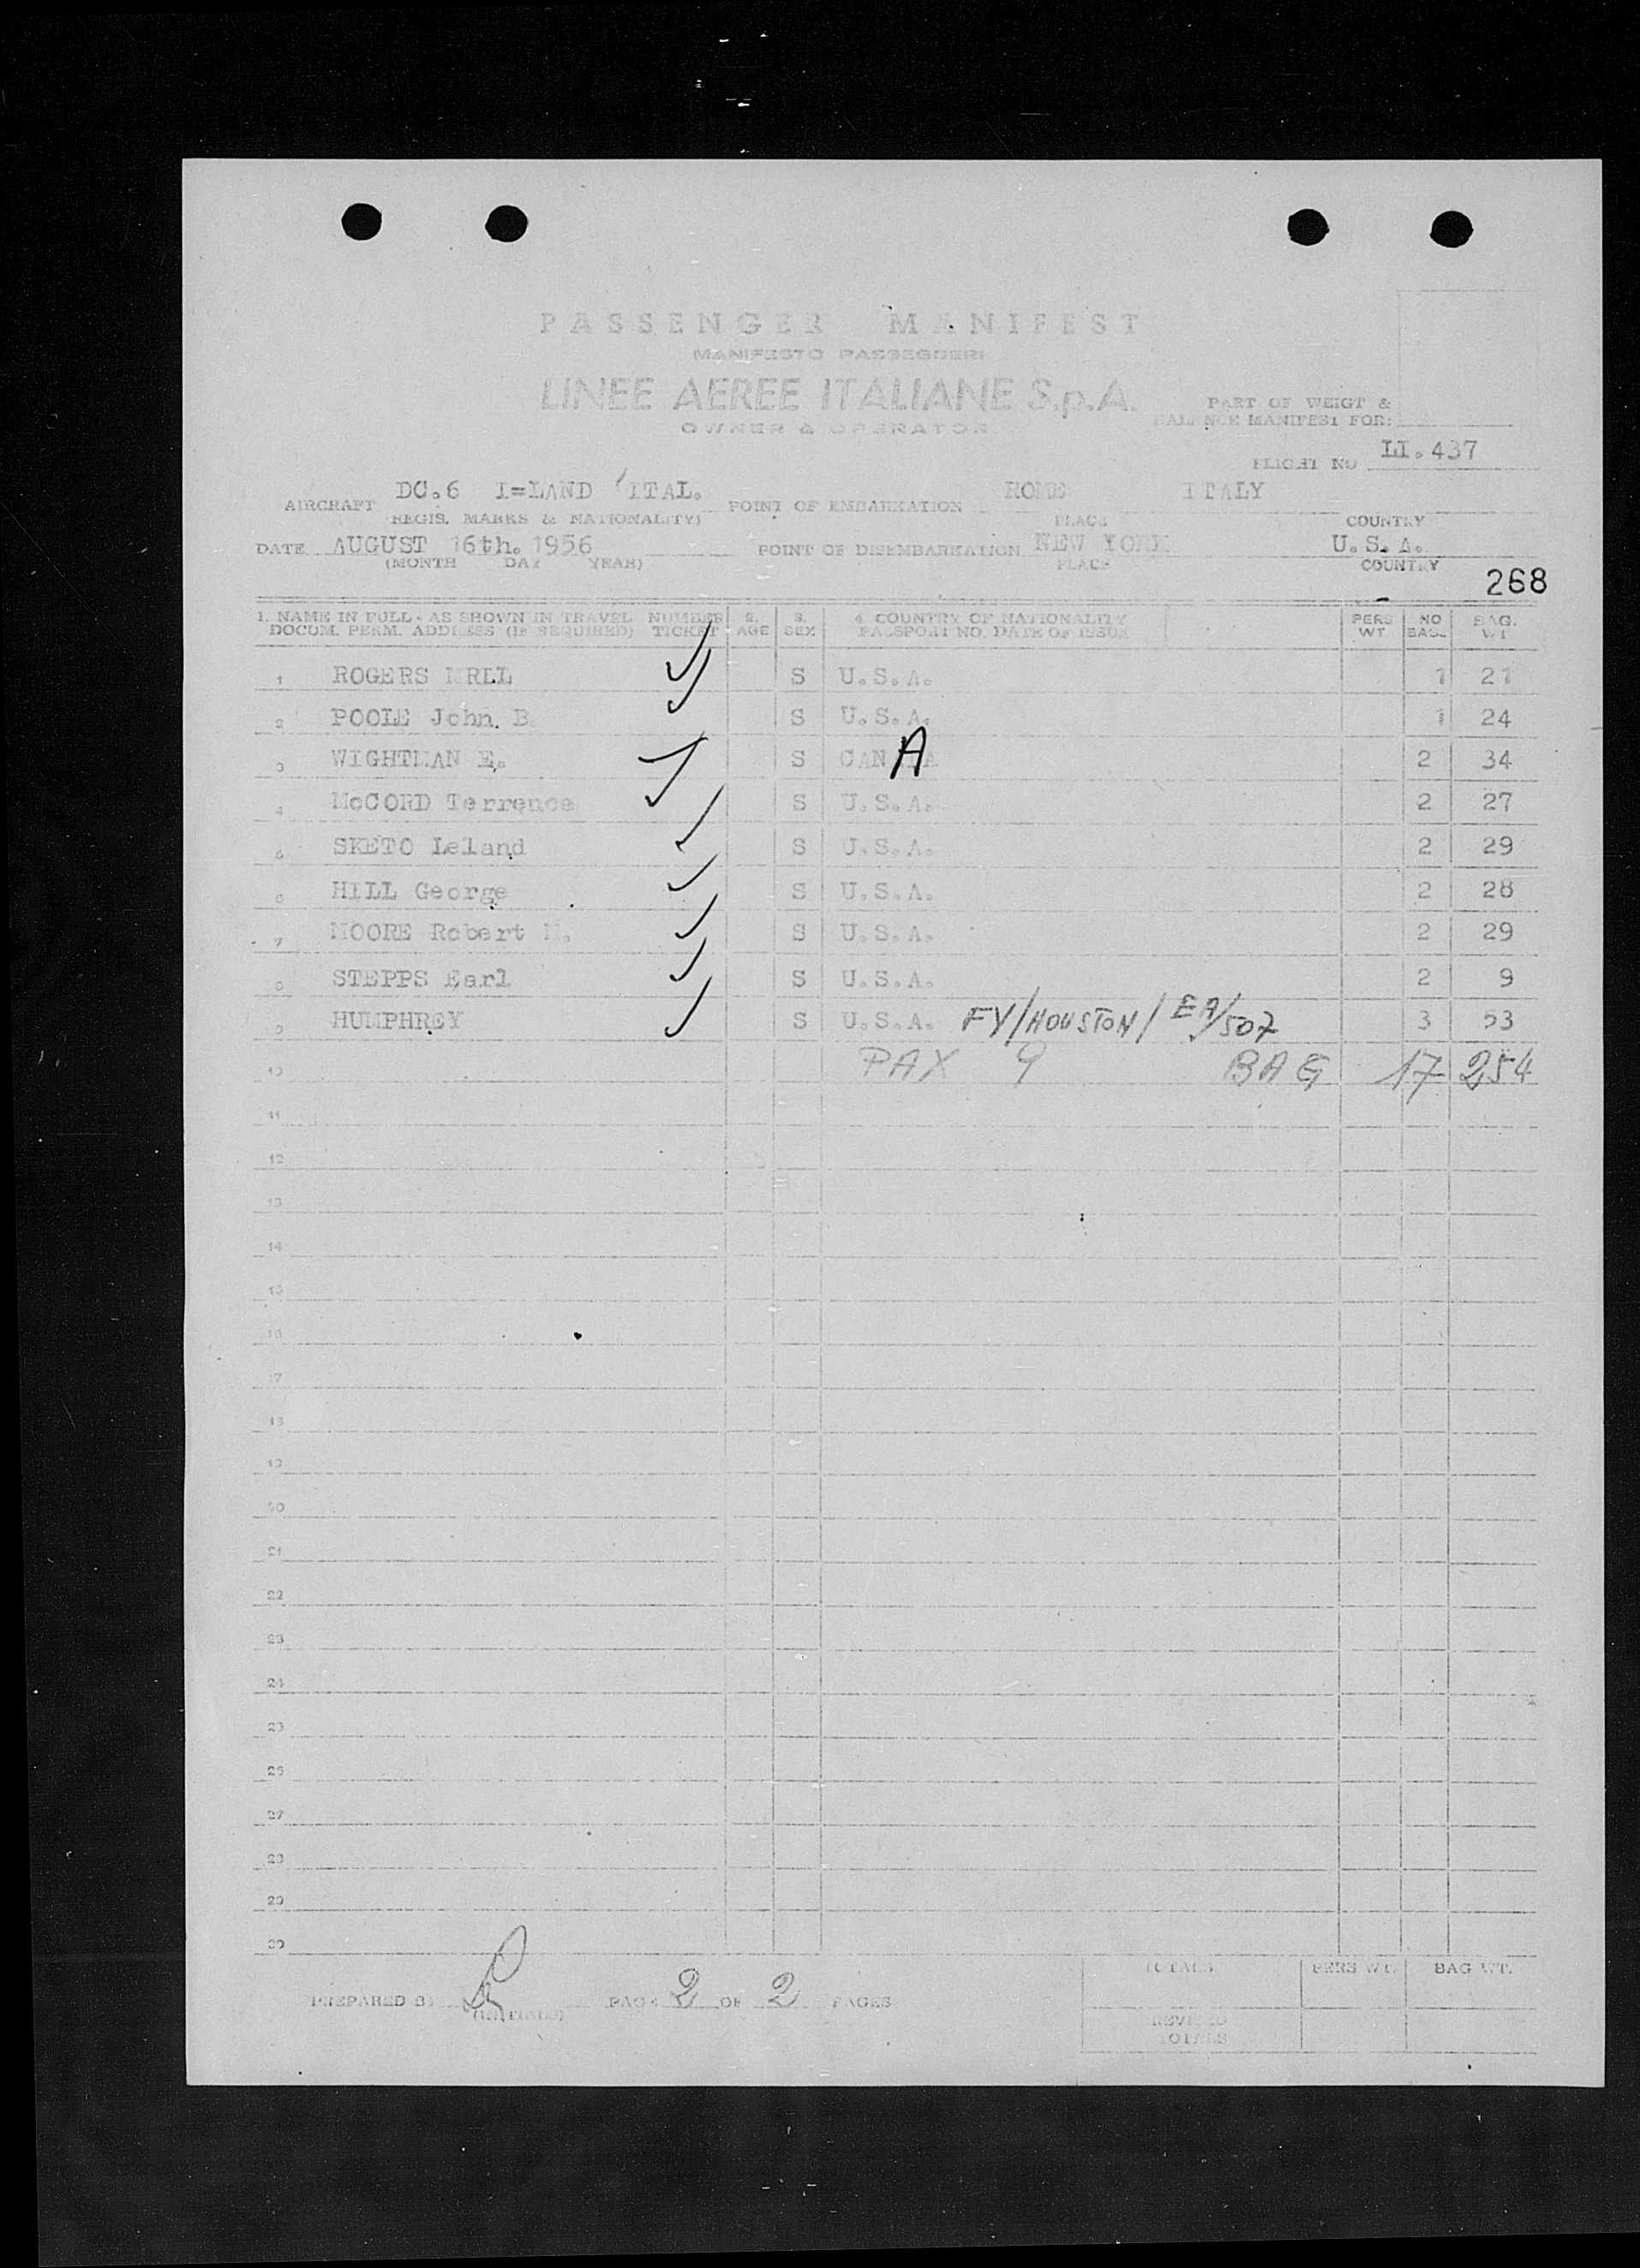 PASSENGER MANIFEST
MANIFESTO PASSEGGERI
LINEE AEREE ITALIANE S.p.A.
OWNER & OPERATOR
PART OF WEIGT &
BALANCE MANIFEST FOR:
FLIGHT NO LI.437
AIRCRAFT DC.6 I=LAND (ITAL. POINT OF EMBARKATION ROME ITALY
(REGIS. MARKS & NATIONALITY) PLACE COUNTRY
DATE AUGUST 16th. 1956 POINT OF DISEMBARKATION NEW YORK U.S.A.
(MONTH DAY YEAR) PLACE COUNTRY
268
1. NAME IN FULL - AS SHOWN IN TRAVEL NUMBER 2. 3. 4. COUNTRY OF NATIONALITY PERS NO BAG.
DOCUM. PERM. ADDRESS (IF REQUIRED) TICKET AGE SEX PASSPORT NO. DATE OF ISSUE WT BAGG WT
1 ROGERS S U.S.A. 1 21
2 POOLE John B. S U.S.A. 1 24
3 WIGHTMAN E. S CANADA A 2 34
4 McCORD Terrence S U.S.A. 2 27
5 SKETO Leland S U.S.A. 2 29
6 HILL George S U.S.A. 2 28
7 MOORE Robert M. S U.S.A. 2 29
8 STEPPS Earl S U.S.A. 2 9
9 HUMPHREY S U.S.A. FY/HOUSTON/EA/507 3 53
10 PAX 9 BAG 17 254
11
12
13
14
15
16
17
18
19
20
21
22
23
24
25
26
27
28
29
30
TOTALS PERS WT. BAG WT.
PREPARED BY PAGE 2 OF 2 PAGES
(INITIALS)
REVISED
TOTALS